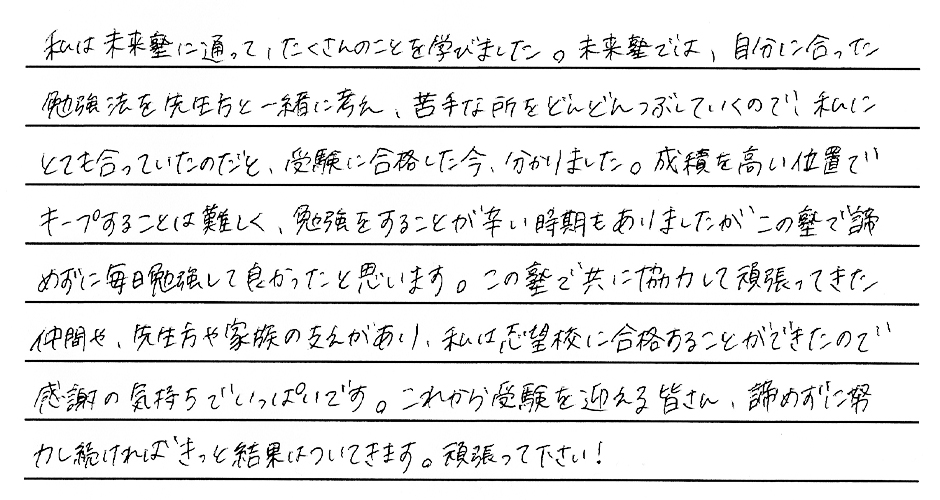 私は未来塾に通って、たくさんのことを学びました。未来塾では、自分に合った
勉強法を先生方と一緒に考え、苦手な所をどんどんつぶしていくので、私に
とても合っていたのだと、受験に合格した今、分かりました。成績を高い位置で
キープすることは難しく、勉強をすることが辛い時期もありましたが、この塾で諦
めずに毎日勉強して良かったと思います。この塾で共に協力して頑張ってきた
仲間や、先生方や家族の支えがあり、私は志望校に合格することができたので
感謝の気持ちでいっぱいです。これから受験を迎える皆さん、諦めずに努
力し続ければきっと結果はついてきます。頑張って下さい!